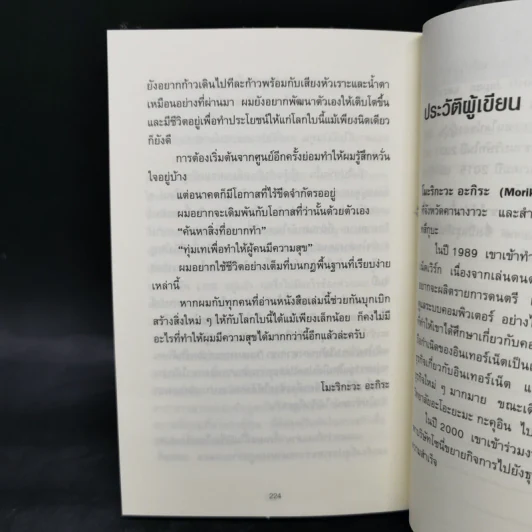 ยังอยากก้าวเดินไปทีละก้าวพร้อมกับเสียงหัวเราะและน้ำตา
เหมือนอย่างที่ผ่านมา ผมยังอยากพัฒนาตัวเองให้เติบโตขึ้น
และมีชีวิตอยู่เพื่อทำประโยชน์ให้แก่โลกใบนี้แม้เพียงนิดเดียว
ก็ยังดี
การต้องเริ่มต้นจากศูนย์อีกครั้งย่อมทำให้ผมรู้สึกหวั่น
ใจอยู่บ้าง
แต่อนาคตก็มีโอกาสที่ไร้ขีดจำกัดรออยู่
ผมอยากจะเดิมพันกับโอกาสที่ว่านั้นด้วยตัวเอง
"ค้นหาสิ่งที่อยากทำ"
"ทุ่มเทเพื่อทำให้ผู้คนมีความสุข"
ผมอยากใช้ชีวิตอย่างเต็มที่บนกฎพื้นฐานที่เรียบง่าย
เหล่านี้
หากผมกับทุกคนที่อ่านหนังสือเล่มนี้ช่วยกันบุกเบิก
สร้างสิ่งใหม่ ๆ ให้กับโลกใบนี้ได้แม้เพียงเล็กน้อย ก็คงไม่มี
อะไรที่ทำให้ผมมีความสุขได้มากกว่านี้อีกแล้วล่ะครับ
โมะริกะวะ อะกิระ
224
ประวัติผู้เขียน
โมะริกะวะ อะกิระ (Morik
ที่จังหวัดคานางาวะ และสำ
ในปี 1989 เขาเข้าทำ
เน็ตเวิร์ก เนื่องจากเล่นดนต
อยากจะผลิตรายการดนตรี
คุมระบบคอมพิวเตอร์ อย่างไ
ทำให้เขาได้ศึกษาเกี่ยวกับคอ
กำเนิดของอินเทอร์เน็ตเป็นเ
ธุรกิจเกี่ยวกับอินเทอร์เน็ต แ
ธุรกิจใหม่ ๆ มากมาย ขณะเดี
วิทยาลัยอะโอะยะมะ กะคุอิน ไป
ในปี 2000 เขาเข้าร่วมง
บริษัทโซนี่ขยายกิจการไปยังธุ